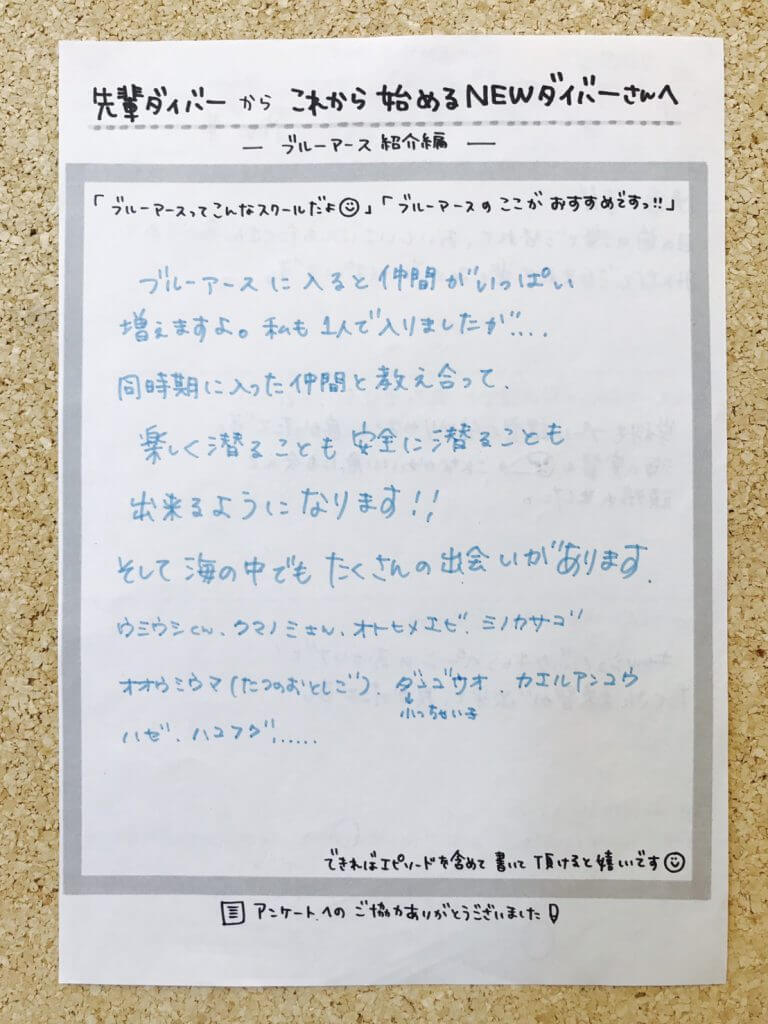 先輩ダイバーから これから 始めるNEWダイバーさんへ
ー ブルーアース 紹介編 ー
「ブルーアースってこんなスクールだよ☺」「ブルーアースの ここが おすすめですっ!!」
ブルーアースに入ると仲間がいっぱい
増えますよ。私も1人で入りましたが....
同時期に入った仲間と教え合って、
楽しく潜ることも安全に潜ることも
出来るようになります!!
そして海の中でもたくさんの出会いがあります。
ウミウシくん、クマノミさん、オトヒメエビ、ミノカサゴ
オオウミウマ(たつのおとしご)、ダンゴウオ カエルアンコウ
小っちゃい子
ハゼ、ハコフグ......
できればエピソードを含めて 書いて 頂けると嬉しいです☺
アンケートへの ご協力ありがとうございました